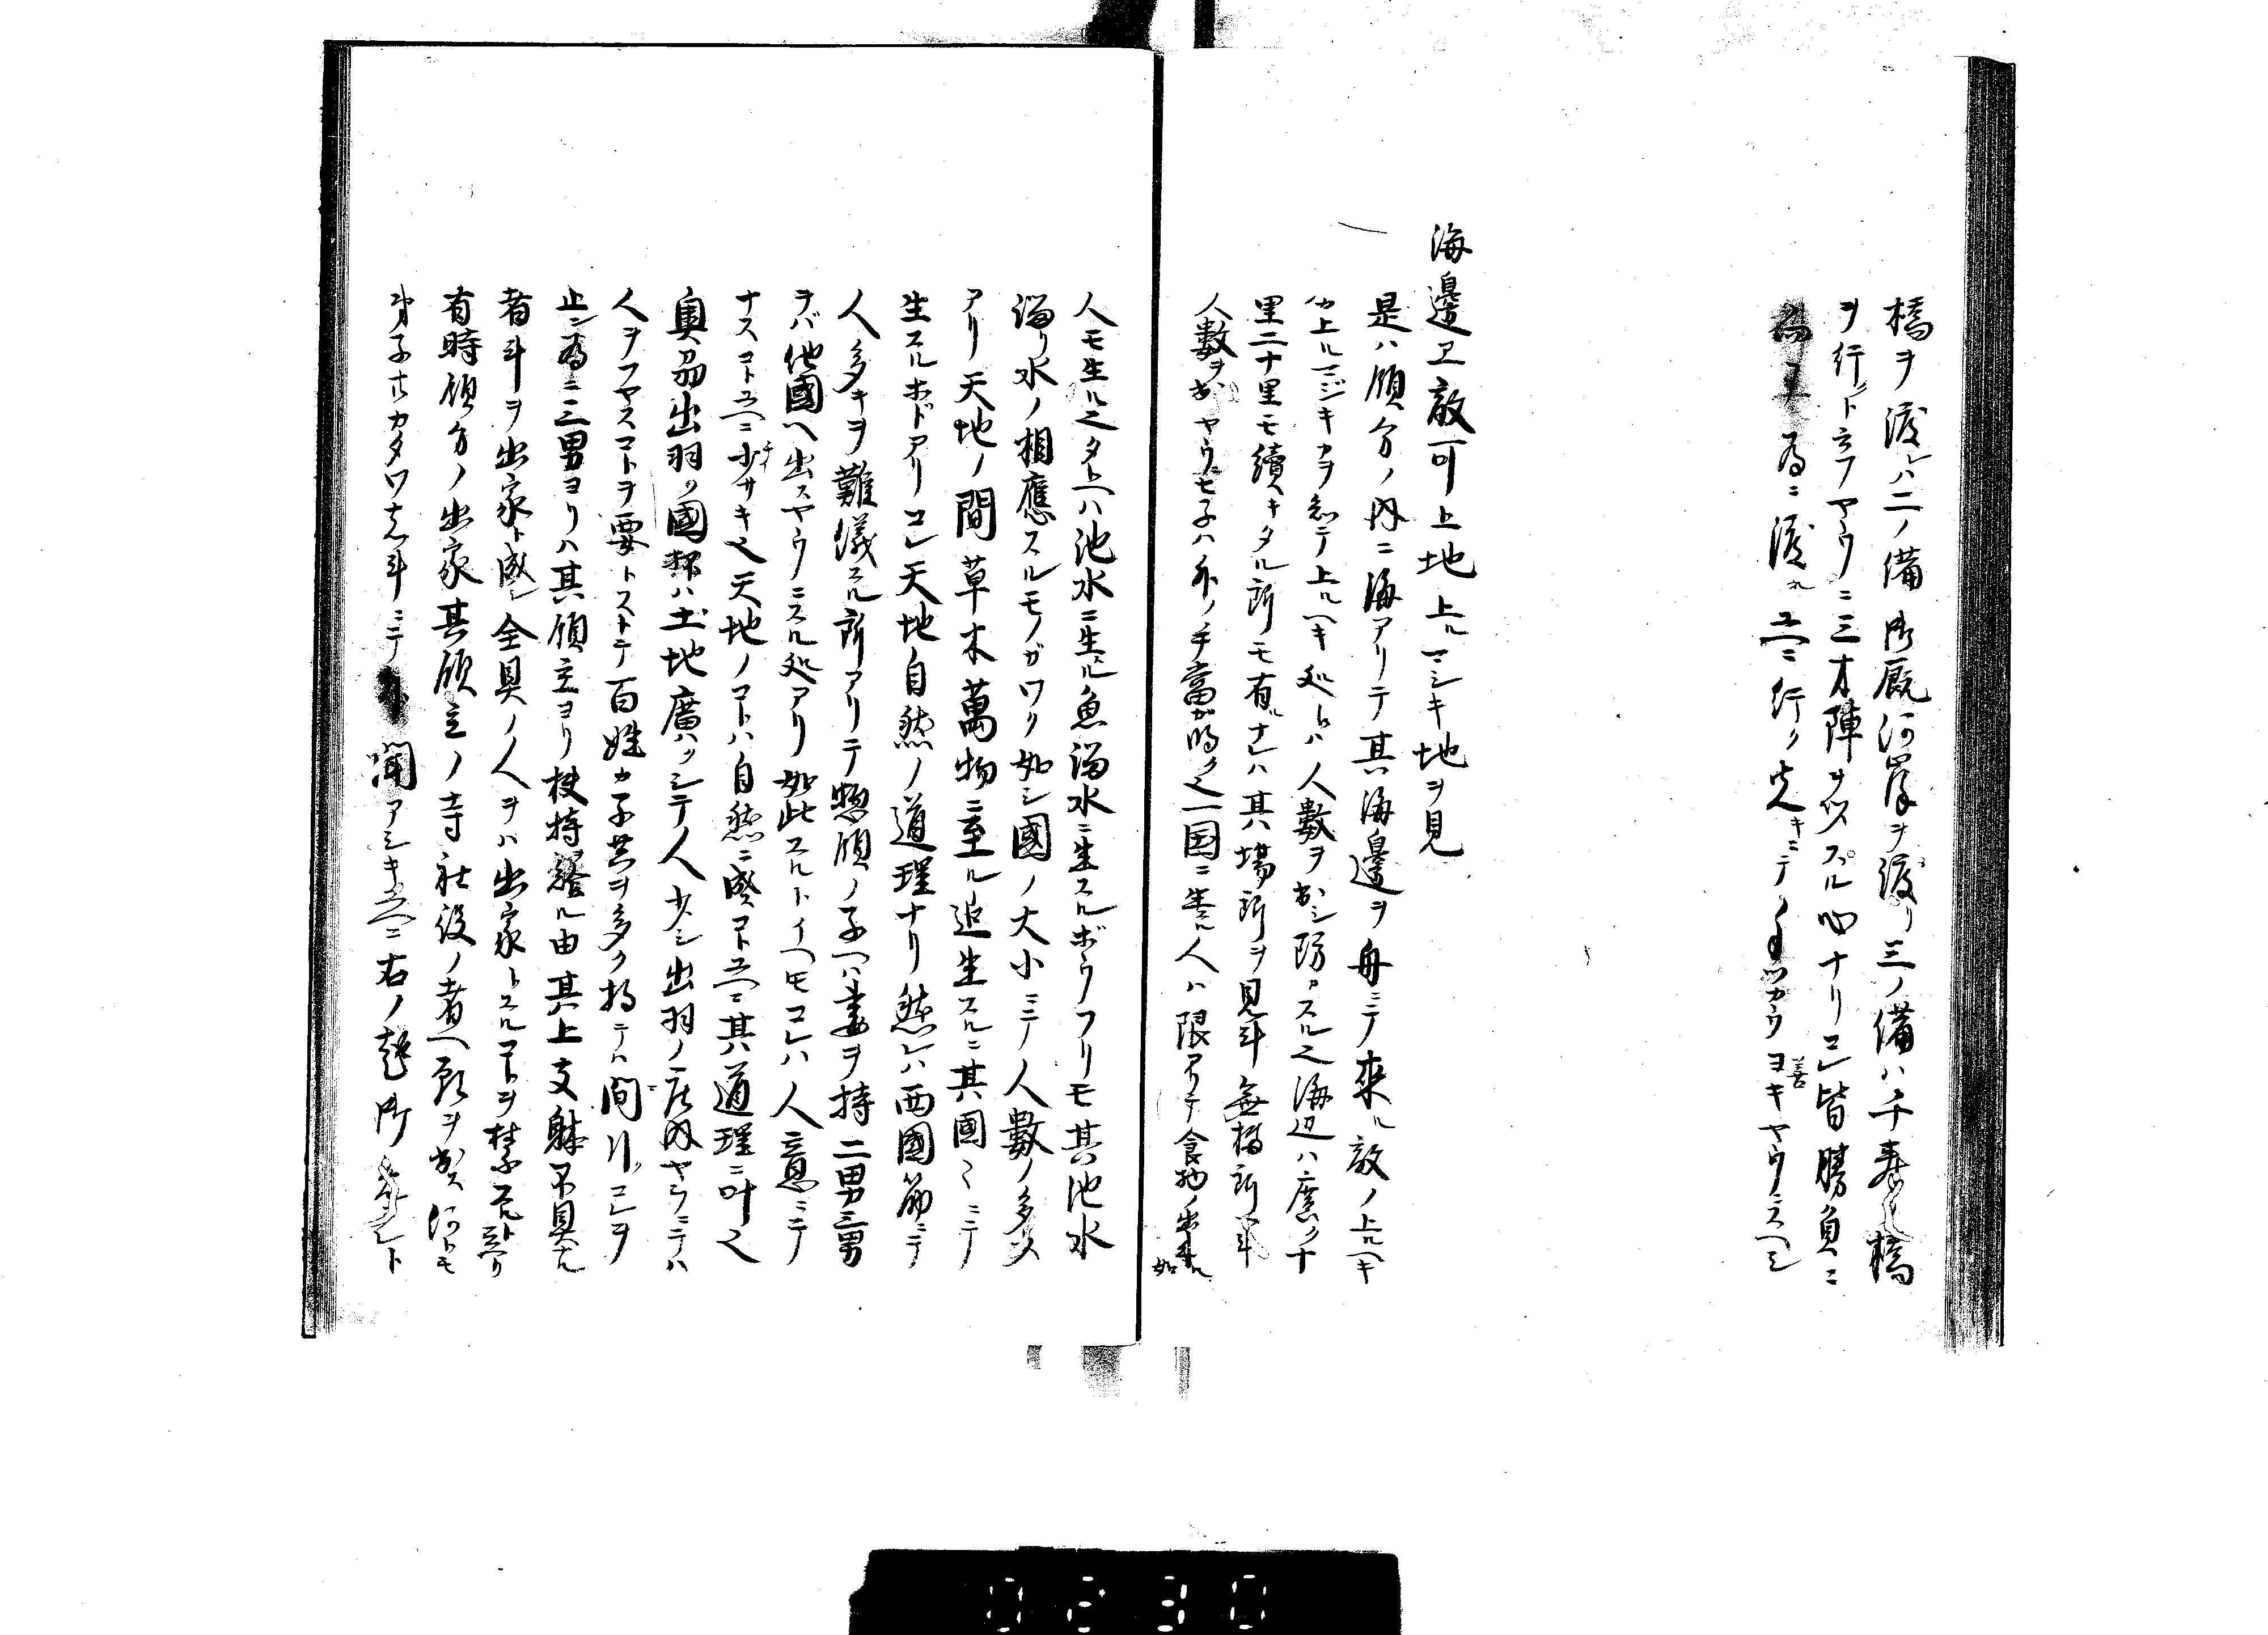 橋ヲ渡レハ二ノ備御厩河岸ヲ渡リ三ノ備ハ千寿ノ橋
ヲ行ト云フヤウニ三才陣ヲスル心ナリコレ皆勝負ニ
為ニ渡ル故ニ行ク先キニテノ手ツカウヨキヤウニスヘシ
善
海邊エ敵可上地上ルマシキ地ヲ見
是ハ領分ノ内ニ海アリテ其海邊ヲ舟ニテ来ル敵ノ上ルヘキ
カ上ルマジキカヲ知テ上ルヘキ処ヘハ人數ヲ出シ防クスル也海辺ハ廣ク十
里二十里モ續キタル所モ有ナレハ其場所ヲ見斗
人數ヲ出ヤウセネハ手當カ鳴ク也一国ニ生ル人ハ限アリテ食物ノ出来ル如
人モ生ル也タトヘハ池水ニ生ル魚溜水ニ生スルボウフリモ其池水
溜リ水ノ相應スルモノガワク如シ國ノ大小ニテ人數ノ多少
アリ天地ノ間草木萬物ニ至ル迄生スルニ其國々ニテ
生スルホドアリコレ天地自然ノ道理ナリ然レハ西國筋ニテ
人多キヲ難儀スル所アリテ惣領ノ子ヘハ妻ヲ持二男三男
ヲバ他國ヘ出スヤウニスル処アリ如此スルトイヘトモコレハ人意ニテ
ナスコト故ニ少サキ也天地ノコトハ自然ニ成コト故ニ其道理ニ叶也
奥刕出羽ノ國抔ハ土地廣クシテ人少シ出羽ノ庄内ヤラニテハ
人ヲフヤスコトヲ要トストテ百姓カ子共ヲ多ク持テハ間引コレヲ
止ン為ニ三男ヨリハ其領主ヨリ扶持ル由其上支躰不具ナル
者斗ヲ出家ト成シ全具ノ人ヲハ出家トスルコトヲ禁
有時領分ノ出家其領主ノ寺社役ノ者ヘ願ヲ出ス何トモ
弟子ホカタワ者斗ニテ聞アシキ故ニ右ノ趣御